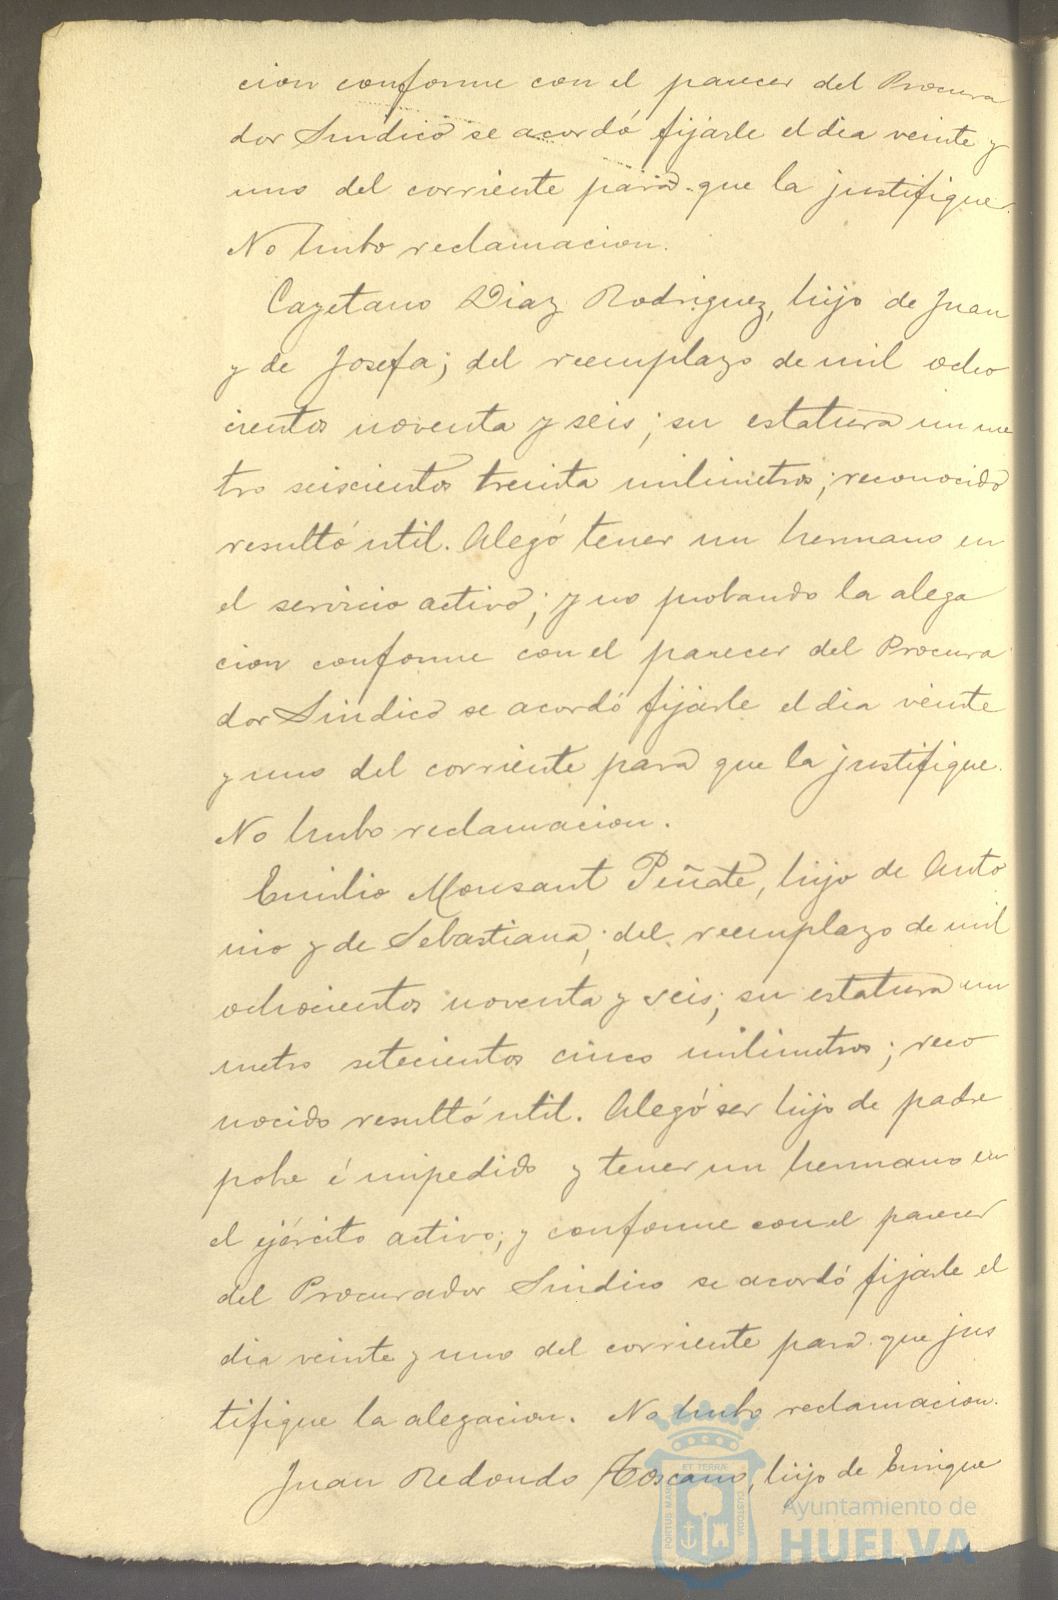 cion conforme con el parecer del Procura
dor Sindico se acordó fijarle el dia veinte y
uno del corriente para que la justifique.
No hubo reclamacion.
Cayetano Diaz Rodriguez, hijo de Juan
y de Josefa; del reemplazo de mil ocho
cientos noventa y seis; su estatura un me
tro seiscientos treinta milimetros; reconocido
resultó util. Alegó tener un hermano en
el servicio activo; y no probando la alega
cion conforme con el parecer del Procura
dor Sindico se acordó fijarle el dia veinte
y uno del corriente para que la justifique.
No hubo reclamacion.
Emilio Monsant Peñate, hijo de Anto
nio y de Sebastiana; del reemplazo de mil
ochocientos noventa y seis; su estatura un
metro setecientos cinco milimetros; reco
nocido resultó util. Alegó ser hijo de padre
pobre é impedido y tener un hermano en
el ejército activo; y conforme con el parecer
del Procurador Sindico se acordó fijarle el
dia veinte y uno del corriente para que jus
tifique la alegacion. No hubo reclamacion.
Juan Redondo Toscano, hijo de Enrique
ET TERRÆ
PORTUS MARIS
CUSTODIA
Ayuntamiento de
HUELVA